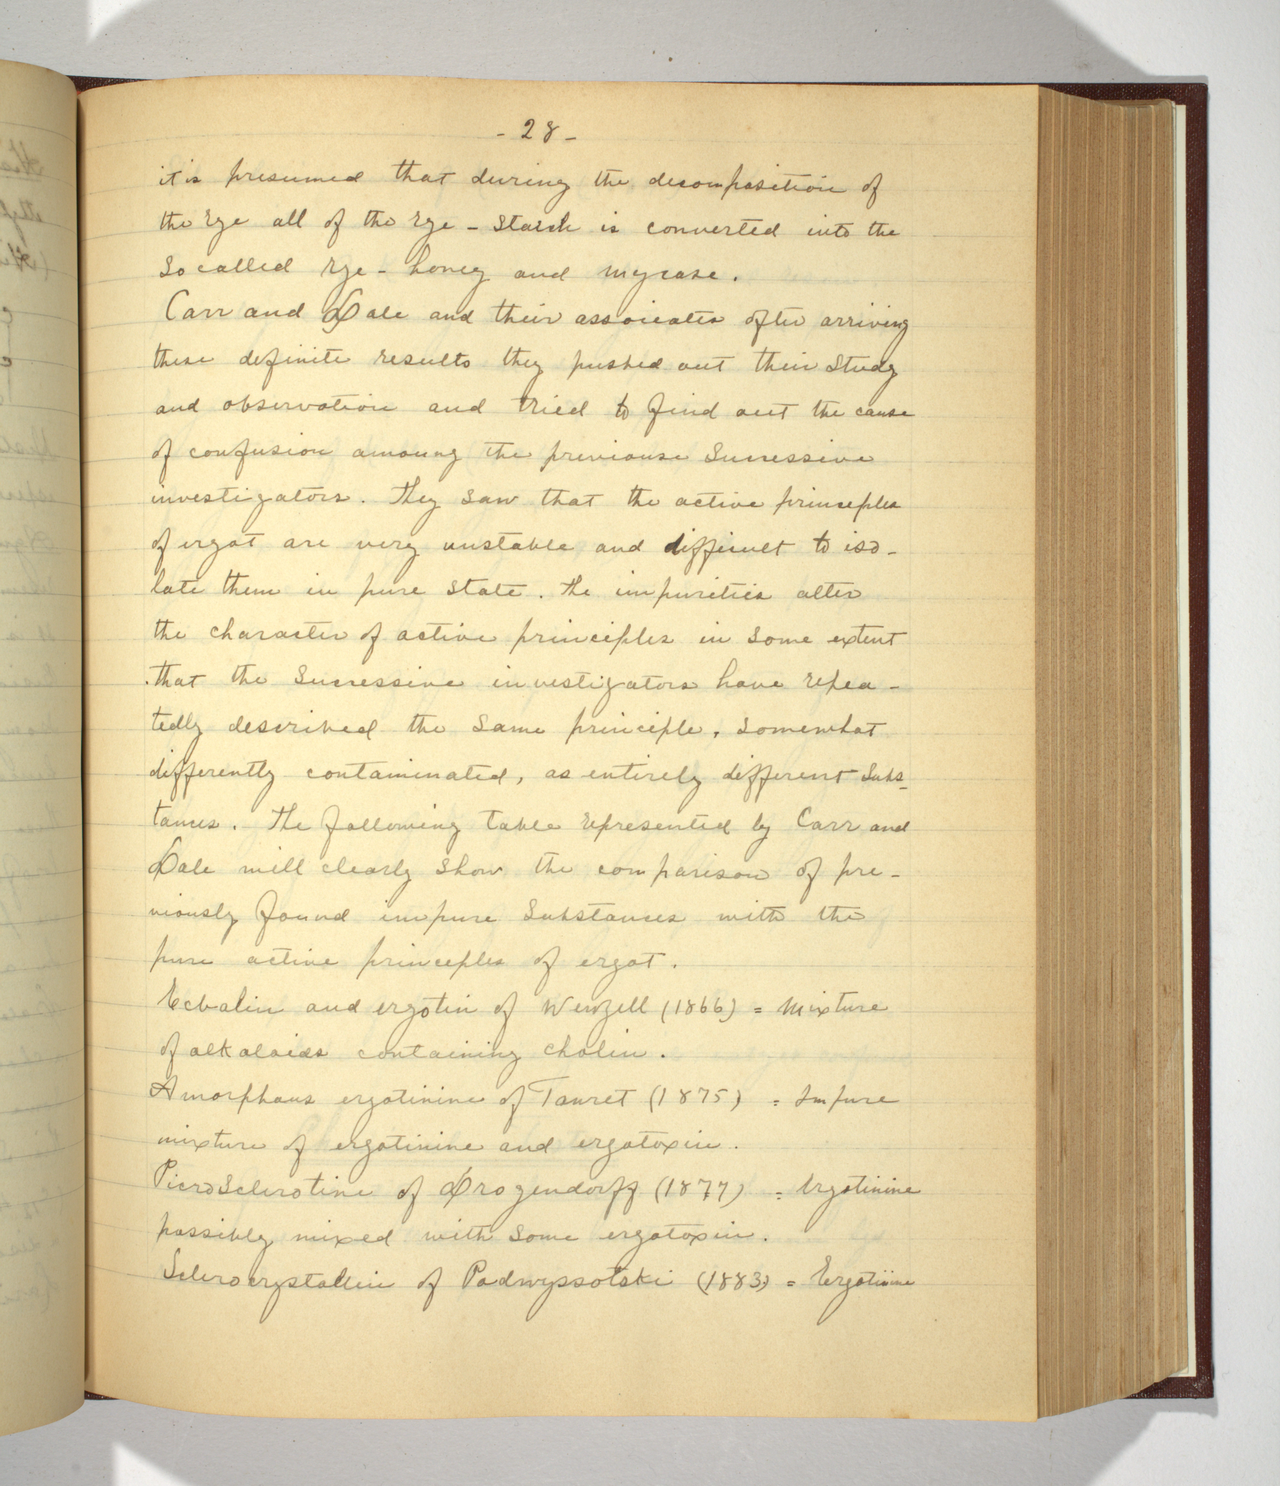 - 28 -
it is presumed that during the decomposition of
the rye all of the rye - starch is converted into the
so called rye - honey and mycose.
Carr and Dale and their assoicates after arriving
these definite results they pushed out their study
and observation and tried to find out the cause
of confusion amoung the previouse successive
investigators. They saw that the active principles
of ergot are very unstable and difficult to iso-
late them in pure state. The impurities alter
the character of active principles in some extent
that the successive investigators have repea-
tedly described the same principle, somewhat
differently contaminated, as entirely different subs-
tances. The following table represented by Carr and
Dale will clearly show the comparison of pre-
viously found impure substances with the
pure active principles of ergot.
Ecbalin and ergotin of Wenzell (1866) = Mixture
of alkaloids containing cholin.
Amorphous ergotinine of Tanret (1875) = Impure
mixture of ergotinine and ergotoxin.
Picrosclerotine of Dragendorff (1877) = Ergotinine
possibly mixed with some ergotoxin.
Sclerocrystallin of Podwyssotski (1883) = Ergotinine